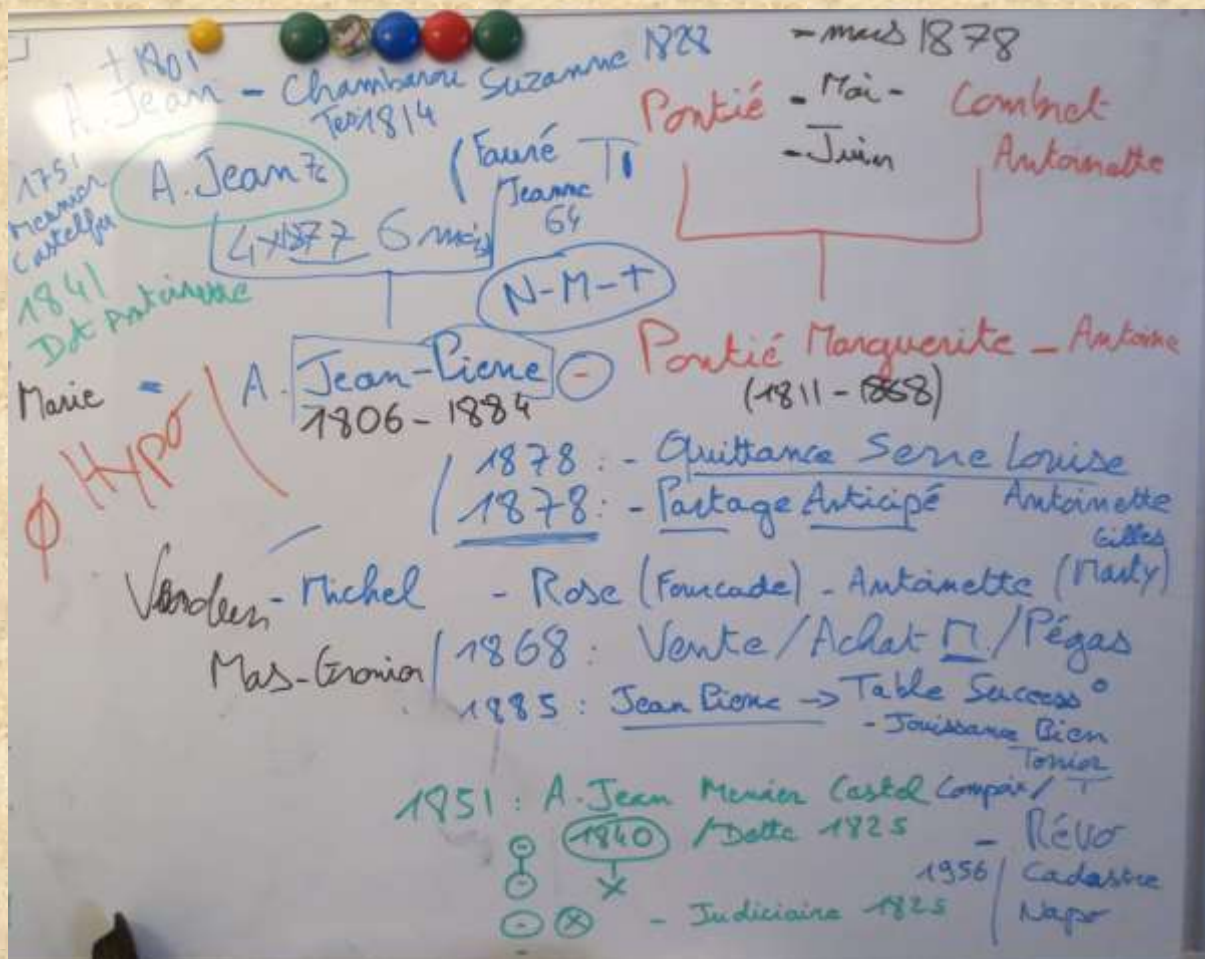 + 1801
A. Jean - Chambarou Suzanne 1828
Tes 1814
- mars 1878
Pontié - Mai - Combret
- Juin Antoinette
1751
Meunier
A. Jean 76
( Fauré
Jeanne
64
4x1877 6 mois
1841
Dot Antoinette
N-M-+
Marie = A. Jean-Pierre - Pontié Marguerite - Antoine
1806-1884
(1811-1868)
Ø Hypo
1878 : - Quittance Serre Louise
1878 : - Partage Anticipé Antoinette
Gilles
- Michel - Rose (Fourcade) - Antoinette (Marty)
Mas-Grenier / 1868 : Vente/Achat Π /Pégas
1885 : Jean Pierre -> Table Success°
- Jouissance Bien
1851 : A. Jean Meunier Castel Compoix / T
1840 / Dette 1825 - Révo
1956 / Cadastre
- Judiciaire 1825 Napo